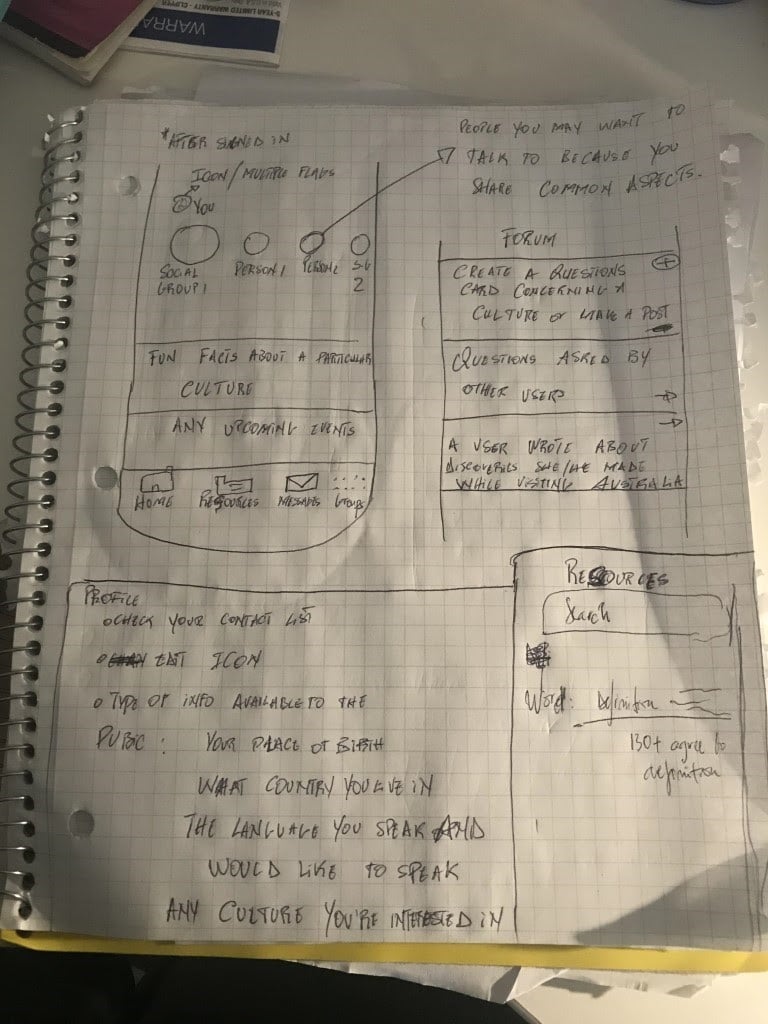 5-YEAR LIMITED WARRANTY - CLIPPER
WARRA
* AFTER SIGNED IN
ICON / MULTIPLE FLAGS
YOU
SOCIAL
GROUP 1
PERSON 1
PERSON 2
SG
2
FUN FACTS ABOUT A PARTICULAR
CULTURE
ANY UPCOMING EVENTS
HOME
RESOURCES
MESSAGES
Groups
PEOPLE YOU MAY WANT TO
TALK TO BECAUSE YOU
SHARE COMMON ASPECTS.
FORUM
CREATE A QUESTIONS
CARD CONCERNING A
CULTURE or MAKE A POST
QUESTIONS ASKED BY
OTHER USERS
A USER WROTE ABOUT
DISCOVERIES SHE/HE MADE
WHILE VISTING AUSTRALIA
PROFILE
CHECK YOUR CONTACT LIST
EDIT ICON
TYPE OF INFO AVAILABLE TO THE
PUBIC : YOUR PLACE OF BIRTH
WHAT COUNTRY YOU LIVE IN
THE LANGUAGE YOU SPEAK AND
WOULD LIKE TO SPEAK
ANY CULTURE YOU'RE INTERESTED IN
RESOURCES
Search
Word: Definition
130+ agree to
definition